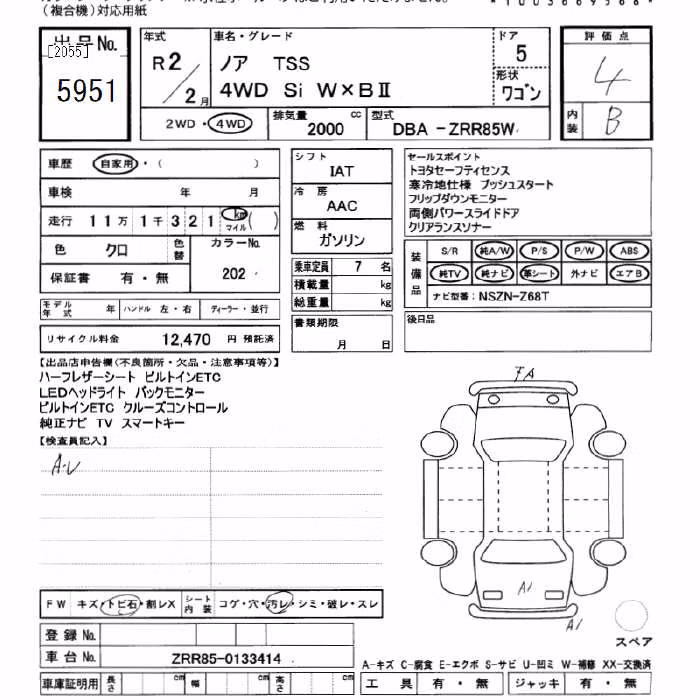 （複合機）対応用紙
出品No.
[2055]
5951
年式
R2/2月
車名・グレード
ノア TSS
4WD Si W×BⅡ
ドア
5
形状
ワゴン
評価点
4
内装
B
2WD・4WD
排気量 cc
2000
型式
DBA -ZRR85W
車歴 自家用・( )
車検 年 月
走行 11万1千321 km マイル ( )
色 クロ 色替
カラーNo.
202
保証書 有・無
シフト
IAT
冷房
AAC
燃料
ガソリン
乗車定員 7 名
積載量 kg
総重量 kg
セールスポイント
トヨタセーフティセンス
寒冷地仕様 プッシュスタート
フリップダウンモニター
両側パワースライドドア
クリアランスソナー
装備品
S/R 純A/W P/S P/W ABS
純TV 純ナビ 革シート 外ナビ エアB
ナビ型番: NSZN-Z68T
モデル年式 年 ハンドル 左・右 ディーラー・並行
リサイクル料金 12,470 円 預託済
書類期限
月 日
後日品
【出品店申告欄(不良箇所・欠品・注意事項等)】
ハーフレザーシート ビルトインETC
LEDヘッドライト バックモニター
ビルトインETC クルーズコントロール
純正ナビ TV スマートキー
【検査員記入】
A・U
FA
A1
A1
FW キズ・トビ石・割レX
シート内装 コゲ・穴・汚レ・シミ・破レ・スレ
スペア
登録No.
車台No. ZRR85-0133414
A-キズ C-腐食 E-エクボ S-サビ U-凹ミ W-補修 XX-交換済
車庫証明用 長さ cm 幅 cm 高さ cm
工具 有・無 ジャッキ 有・無